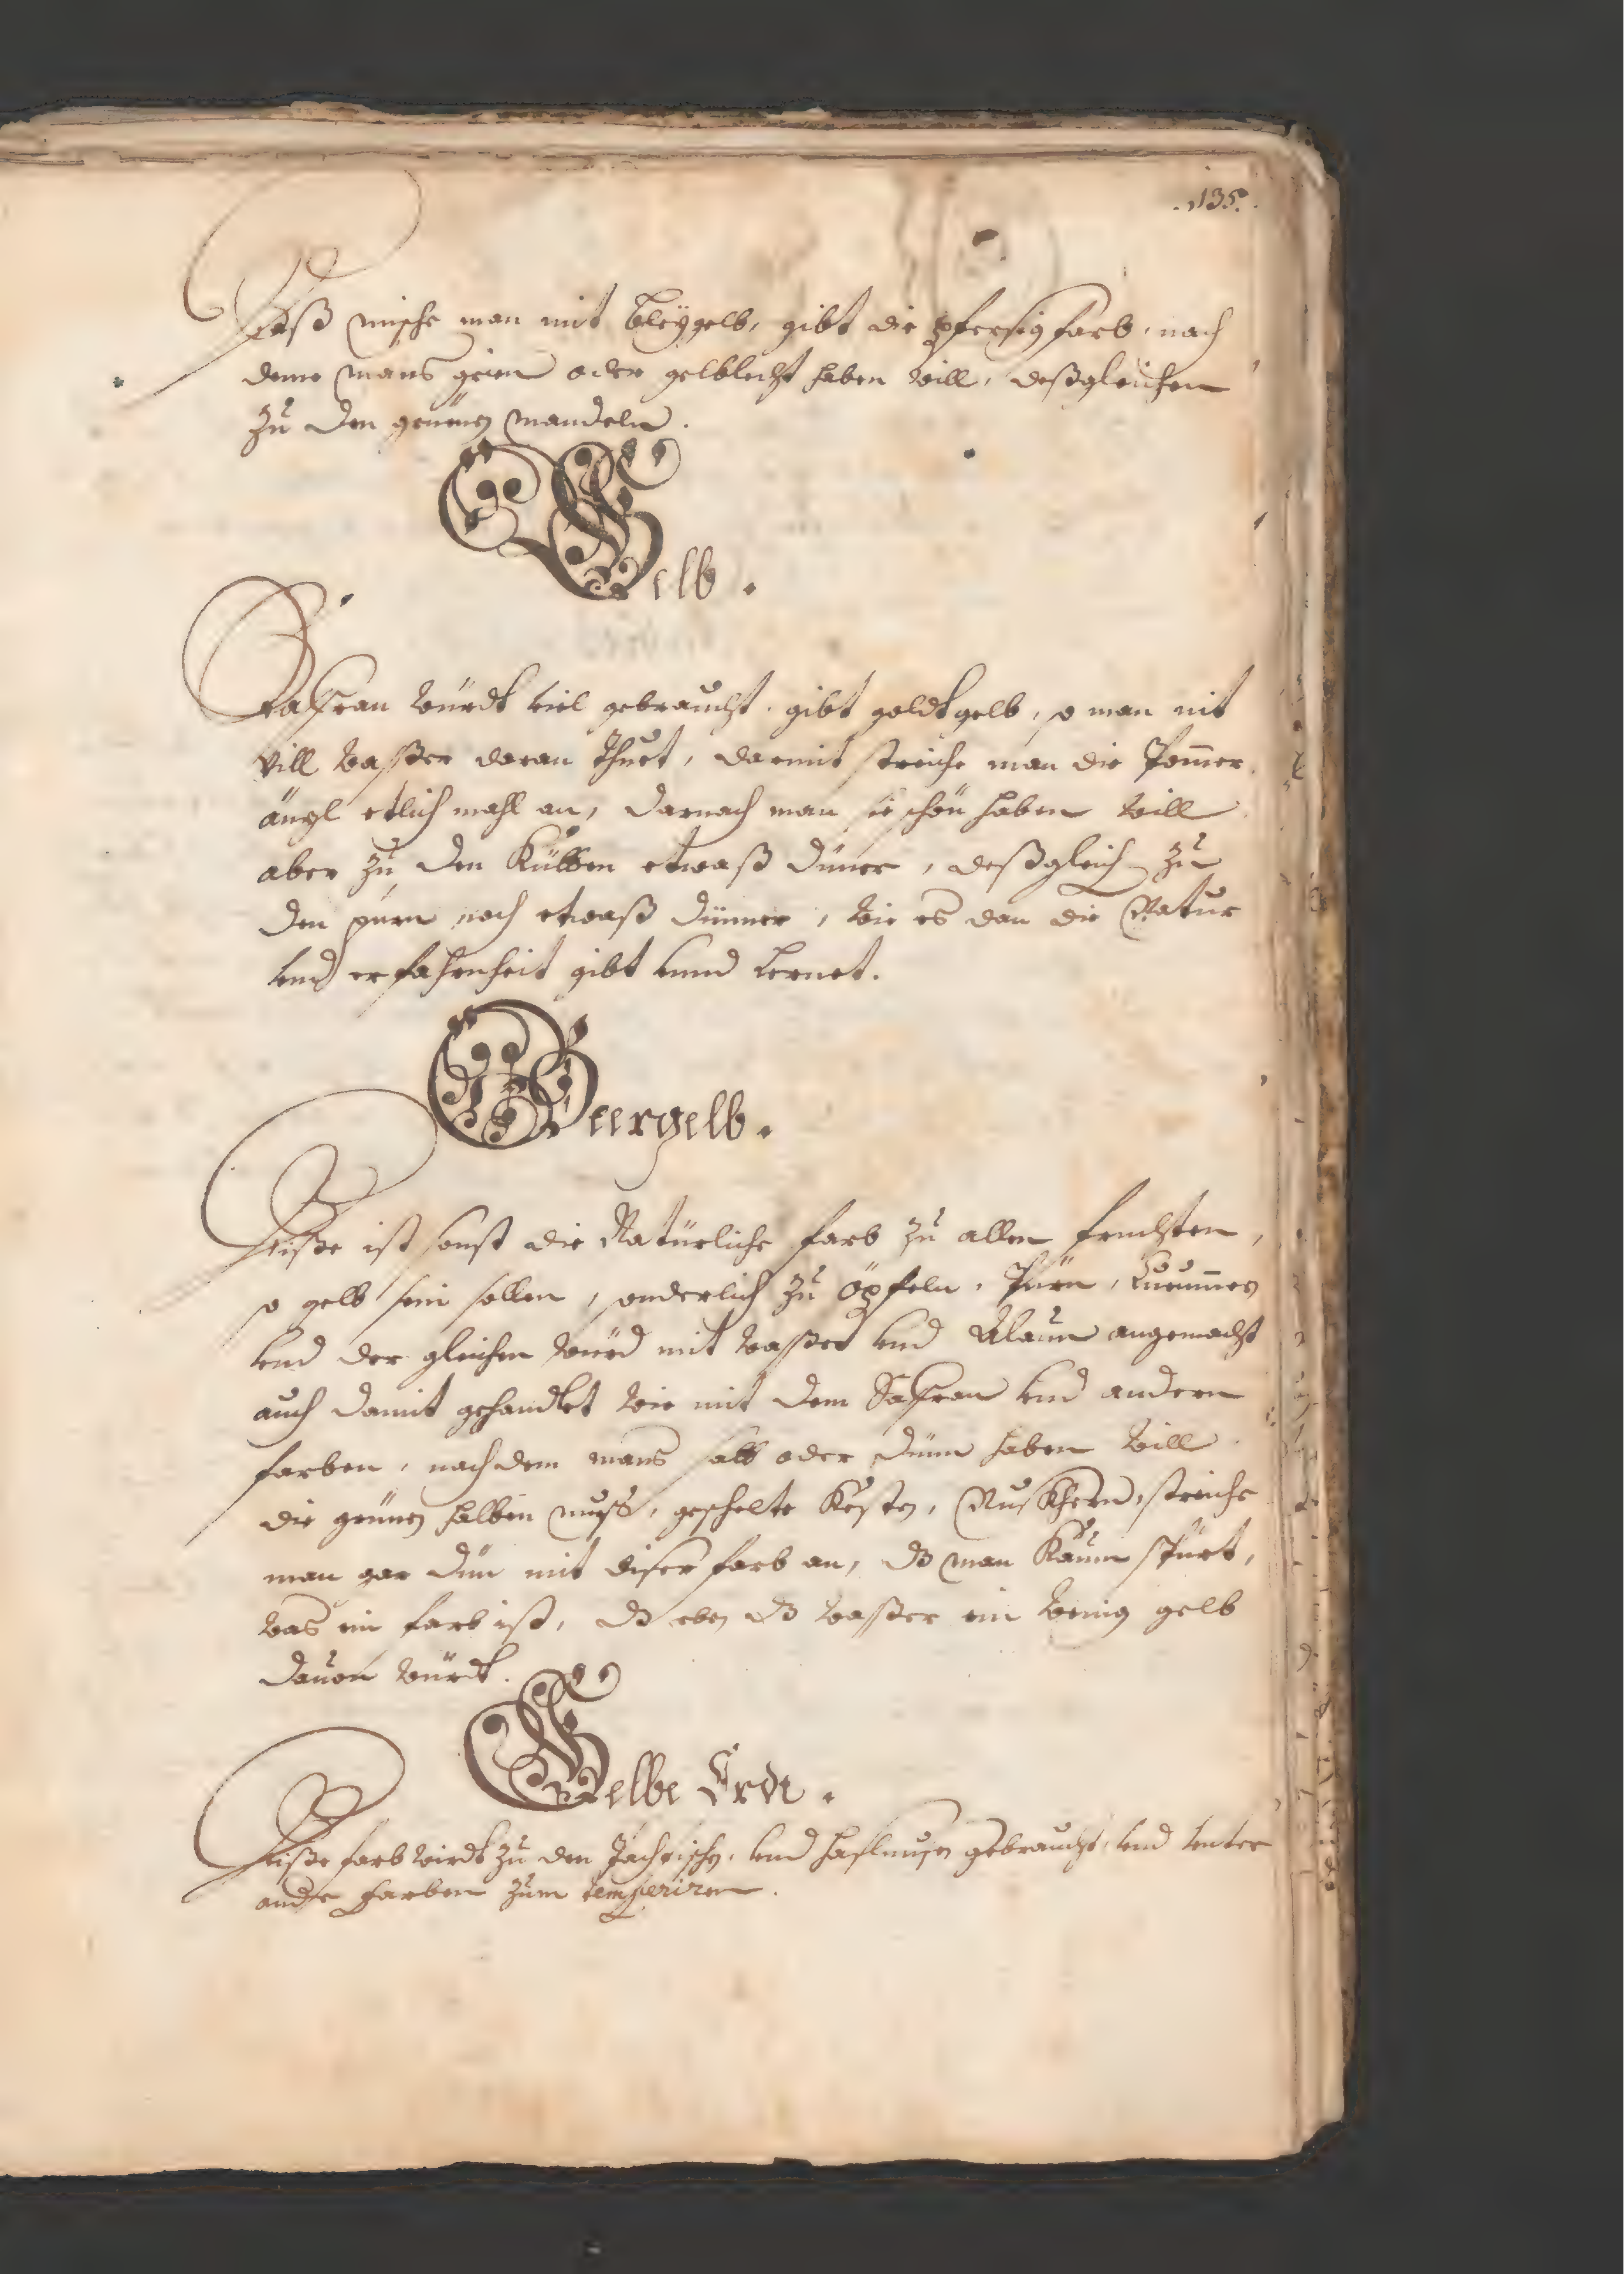 .135.
Daß mische man mit bleÿgelb, gibt die pfersig farb, nach
deme mans grien oder gelblecht haben will, deßgleichen
zu den grünen mandeln.
Gelb.
Saffran würdt viel gebraucht, gibt goldtgelb, so man nit
vill waßer daran thuet, darmit streiche man die Pomer
äntzl etlich mahl an, darnach man sie schön haben will
aber zu den etwaß düner, deßgleich zu
den pürn noch etwaß dünner, wie es dan die Natur
vnd erfahrenheit gibt vnnd lernet.
Beergelb.
Diße ist sonst die Natürliche farb zu allen früchten,
so gelb sein sollen, sonderlich zu öpfeln, Pürn,
vnd der gleichen würd mit waßer vnd Alaun angemacht
auch damit gehandlet wie mit dem Saffran vnd andern
farben, nach dem mans salb oder dünn haben will.
die grünen halben nuß, geschelte Kesten, Nuskhern, streiche
man gar dün mit diser farb an, dz man kaum spürt,
was ein farb ist, dz eben dz waßer ein wenig gelb
dauon würdt.
Gelbe Erdt.
Diße farb wirdt zu den vnd haslnußen gebraucht, vnd vnter
andre farben zum temperiren.